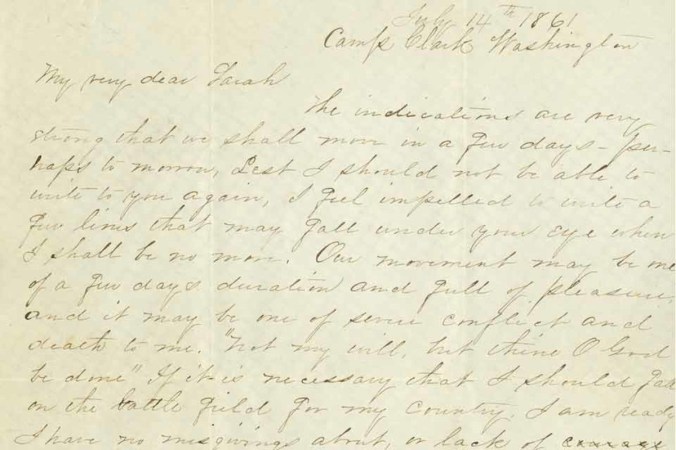 July 14th 1861
Camp Clark Washington
My very dear Sarah
The indications are very
strong that we shall move in a few days – per-
haps to morrow, Lest I should not be able to
write to you again, I feel impelled to write a
few lines that may fall under your eye when
I shall be no more. Our movement may be one
of a few days duration and full of pleasure,
and it may be one of severe conflict and
death to me. "Not my will, but thine O God
be done" If it is necessary that I should fall
on the battle field for my country, I am ready
I have no misgivings about, or lack of courage